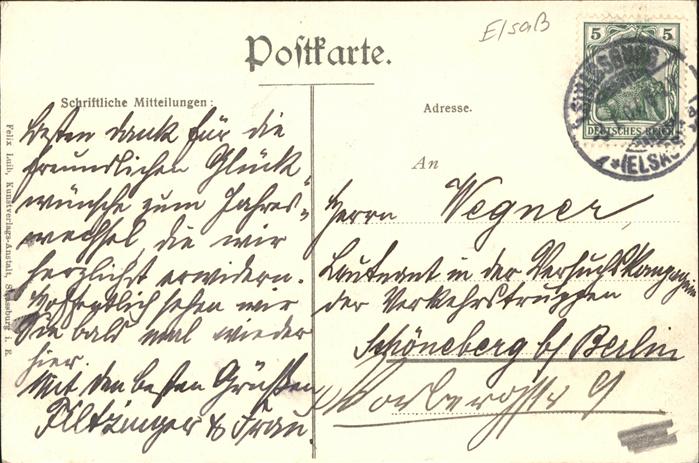 Elsaß
Postkarte.
5 5
DEUTSCHES REICH
STRASSBURG
(ELSASS)
Schriftliche Mitteilungen:
Adresse.
An
Besten Dank für die
freundlichen Glück-
wünsche zum Jahres-
wechsel, die wir
herzlichst erwidern.
Hoffentlich sehen wir
Sie bald mal wieder
hier.
Mit den besten Grüßen
Filtzinger & Frau.
Herrn Wegner,
Leutnant in der Versuchskompagnie
der Verkehrstruppen
Schöneberg b/ Berlin
9
Felix Luib, Kunstverlags-Anstalt, Strassburg i. E.